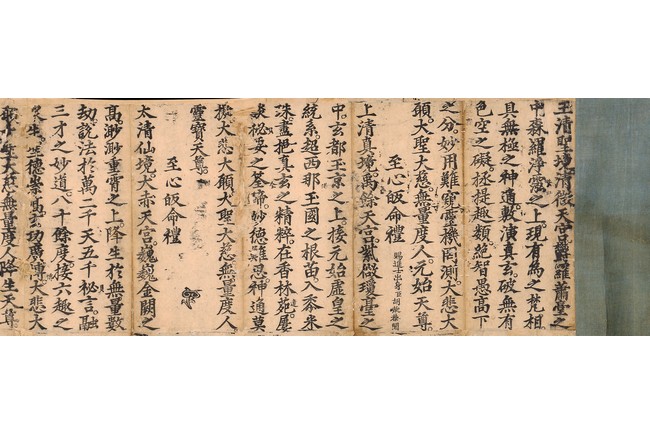 玉清聖境清微天宮欝羅蕭臺之
中森羅淨之上現有為之梵相
具無極之神通敷演真玄破無有
色空之礙拯提趣類絕智愚高下
之分妙用難窺靈機罔測大悲大
願大聖大慈無量度人元始天尊
至心皈命禮 賜進士出身臣胡恭閱
上清真境禹餘天宮紫微瓊臺之
中玄都玉京之上接元始虛皇之
統系超西那玉國之根苗入黍米
珠盡挹真玄之精粹在香林苑屢
談秘妥之荃帝妙德難思神通莫
掞大悲大願大聖大慈無量度人
靈寶天尊
至心皈命禮
太清仙境大赤天宮巍巍金闕之
高渺渺重霄之上降生於無量數
劫說法於萬二千天五千秘言融
三才之妙道八十餘度接六趣之
生德崇高玄功廣溥大悲大
大慈無量度人降生天尊